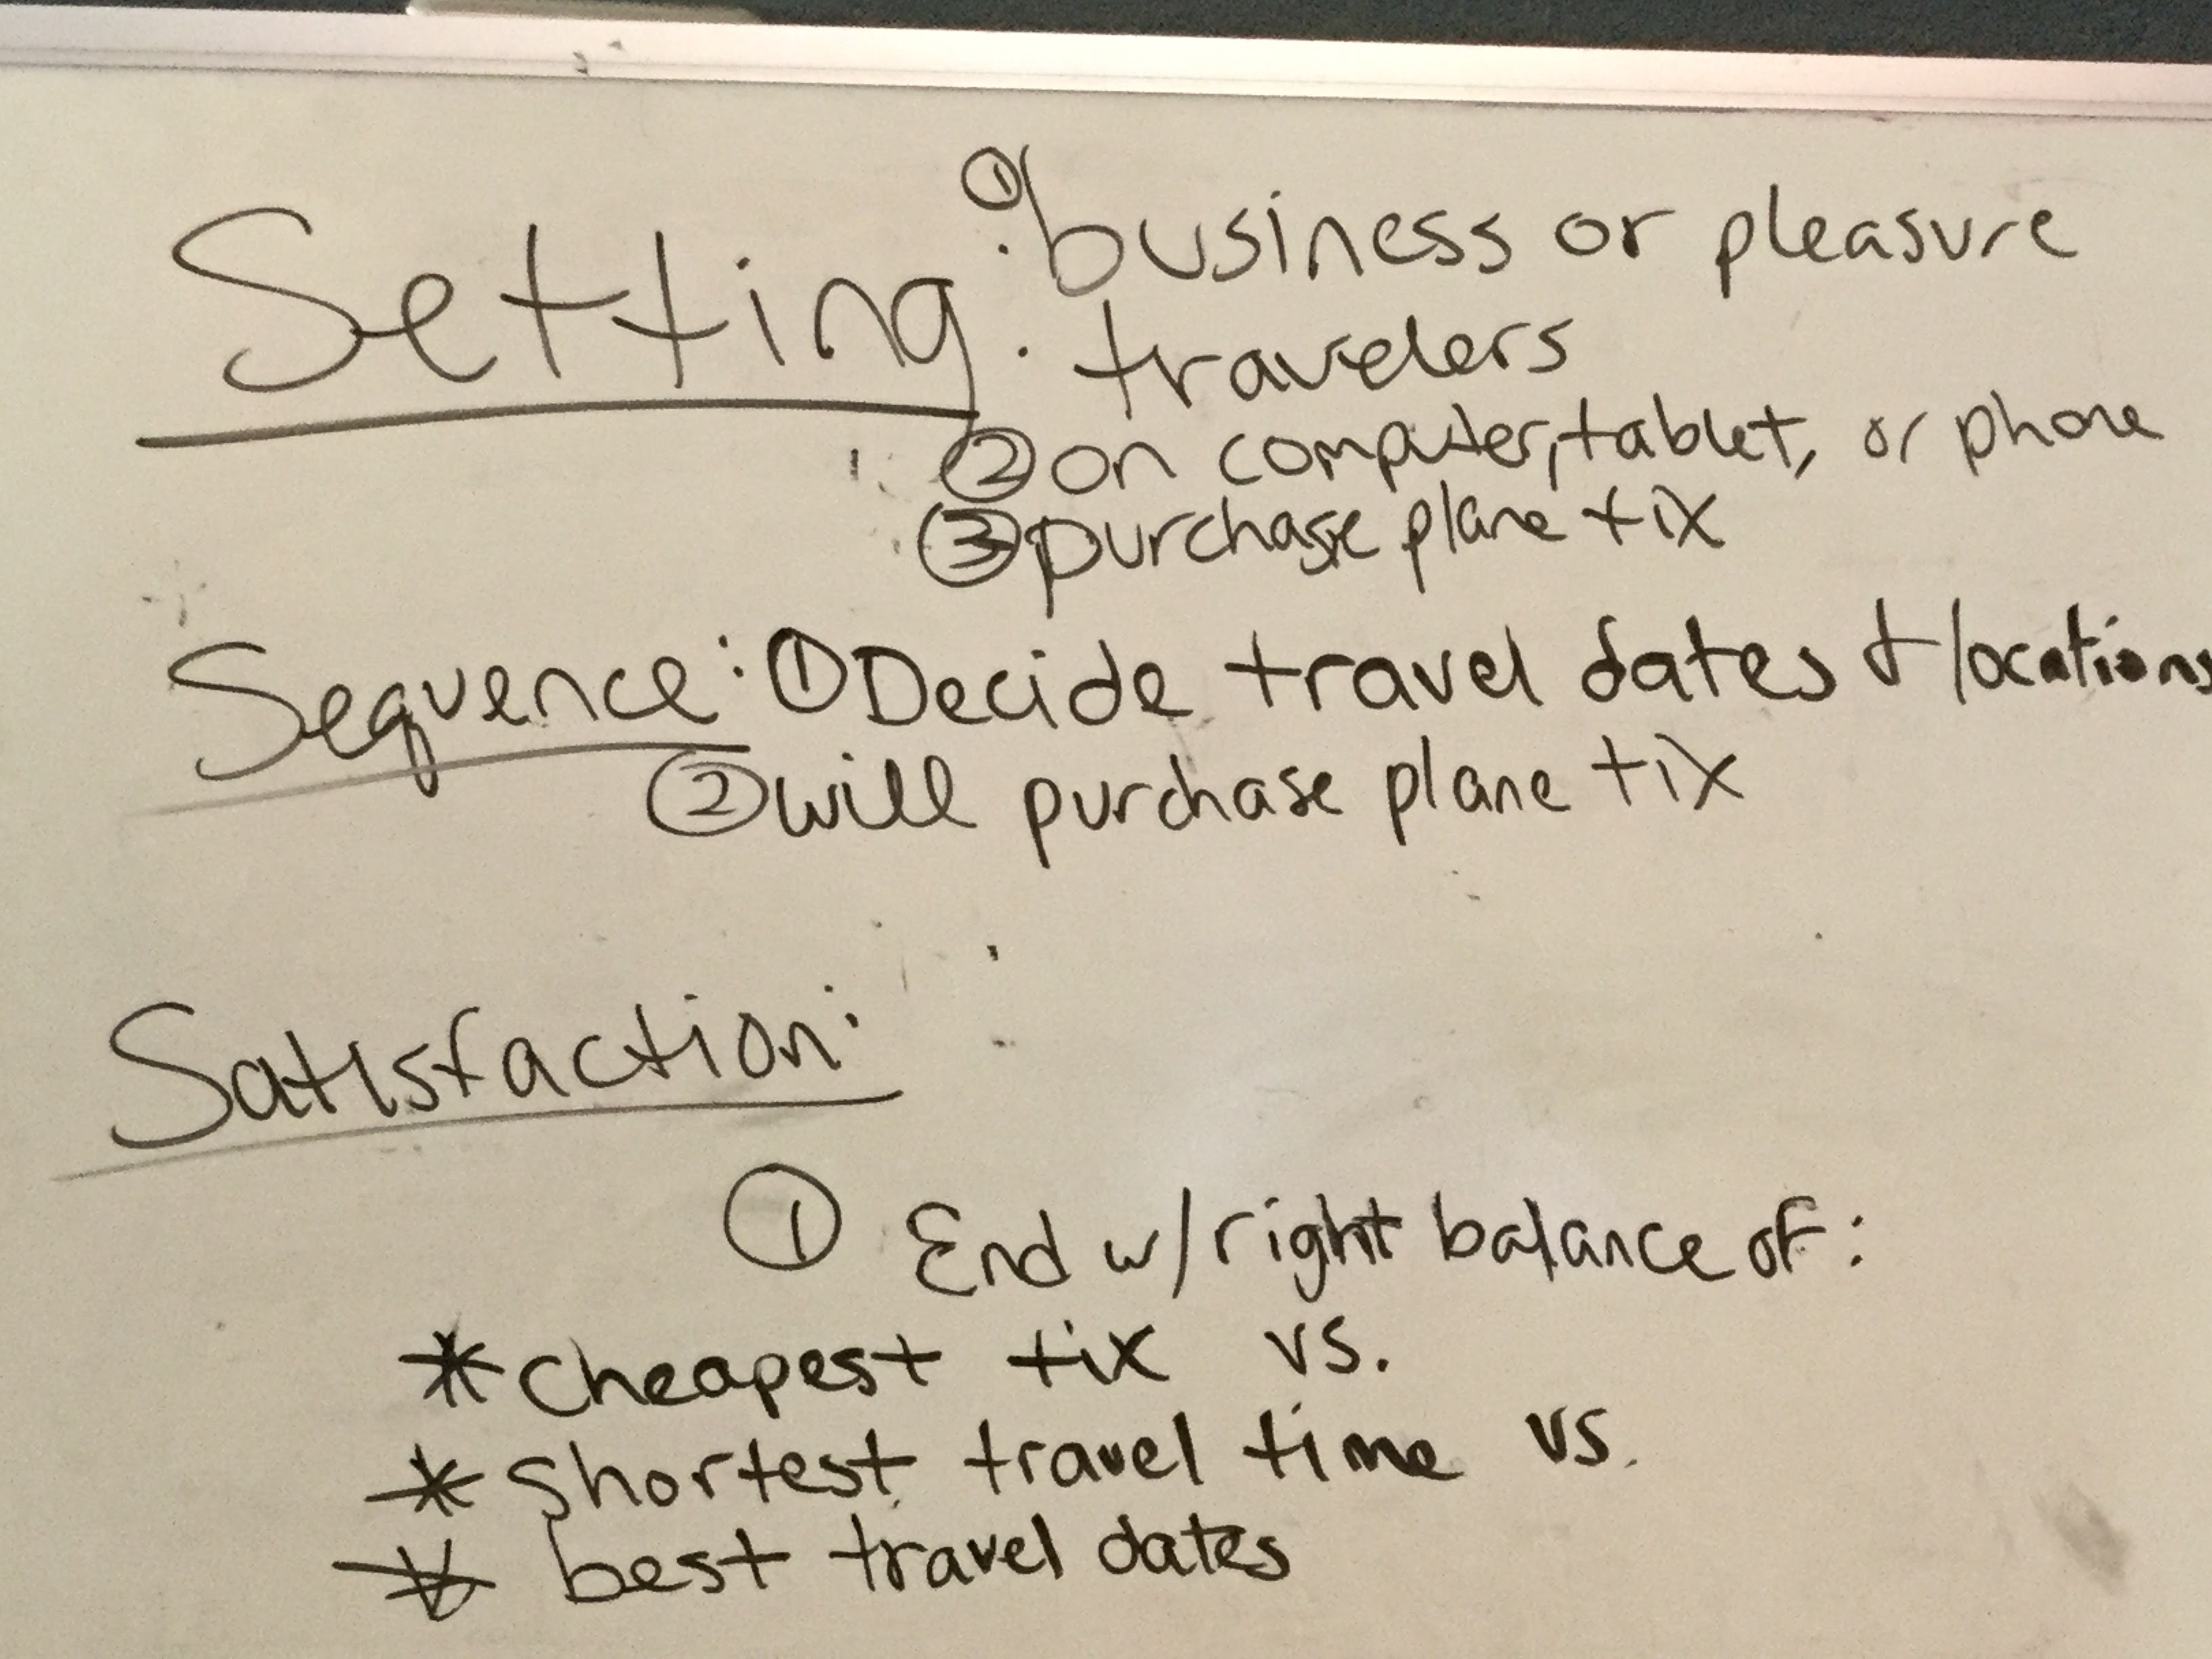 Setting: ① business or pleasure
travelers
② on computer, tablet, or phone
③ purchase plane tix
Sequence: ① Decide travel dates & locations
② will purchase plane tix
Satisfaction:
① End w/ right balance of:
* cheapest tix vs.
* shortest travel time vs.
* best travel dates